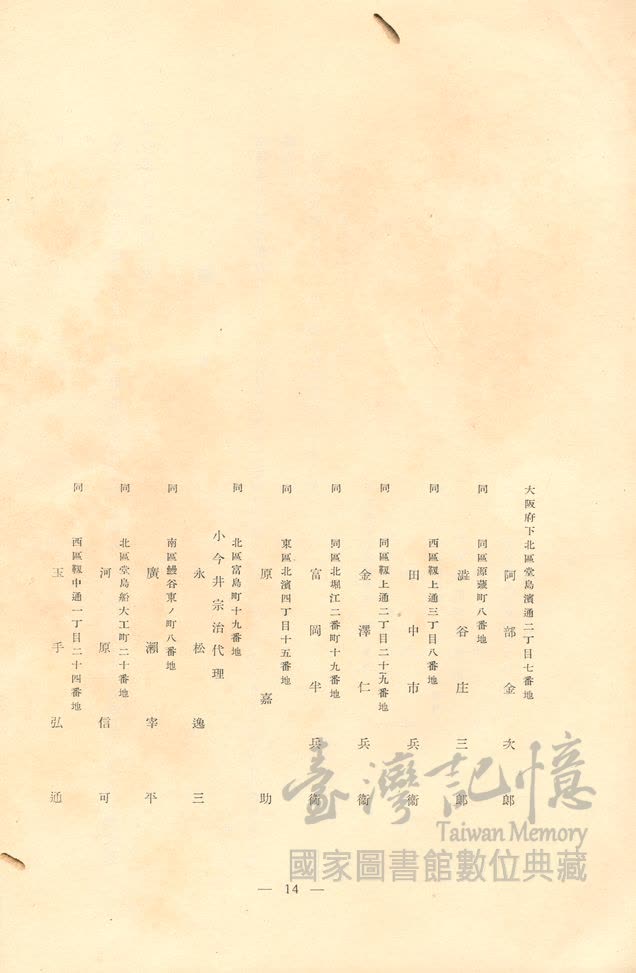 大阪府下北區堂島濱通二丁目七番地
阿部金次郎
同 同區源藏町八番地
澁谷庄三郎
同 西區靱上通三丁目八番地
田中市兵衞
同 同區靱上通二丁目二十九番地
金澤仁兵衞
同 同區北堀江二番町十九番地
富岡半兵衞
同 東區北濱四丁目十五番地
原嘉助
同 北區富島町十九番地
小今井宗治代理
永松逸三
同 南區鰻谷東ノ町八番地
廣瀨宰平
同 北區堂島船大工町二十番地
河原信可
同 西區靱中通一丁目二十四番地
玉手弘通
臺灣記憶
Taiwan Memory
國家圖書館數位典藏
— 14 —